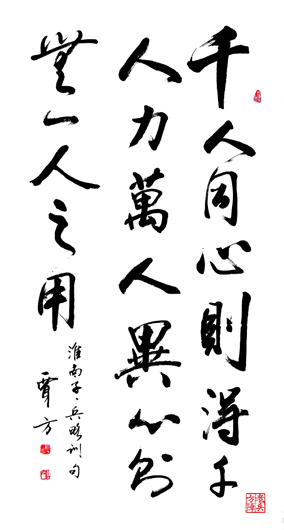 千人同心則得千
人力萬人異心則
無一人之用
淮南子·兵略訓句
賈方